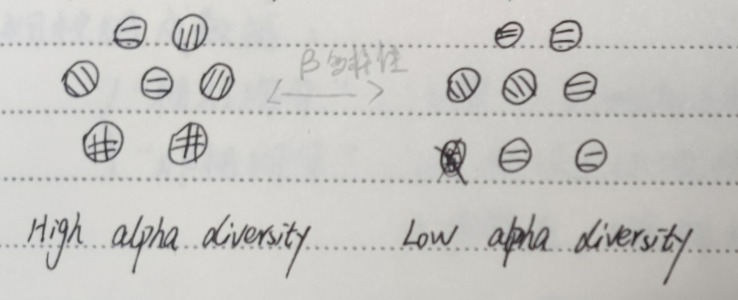 β多样性
High alpha diversity
Low alpha diversity